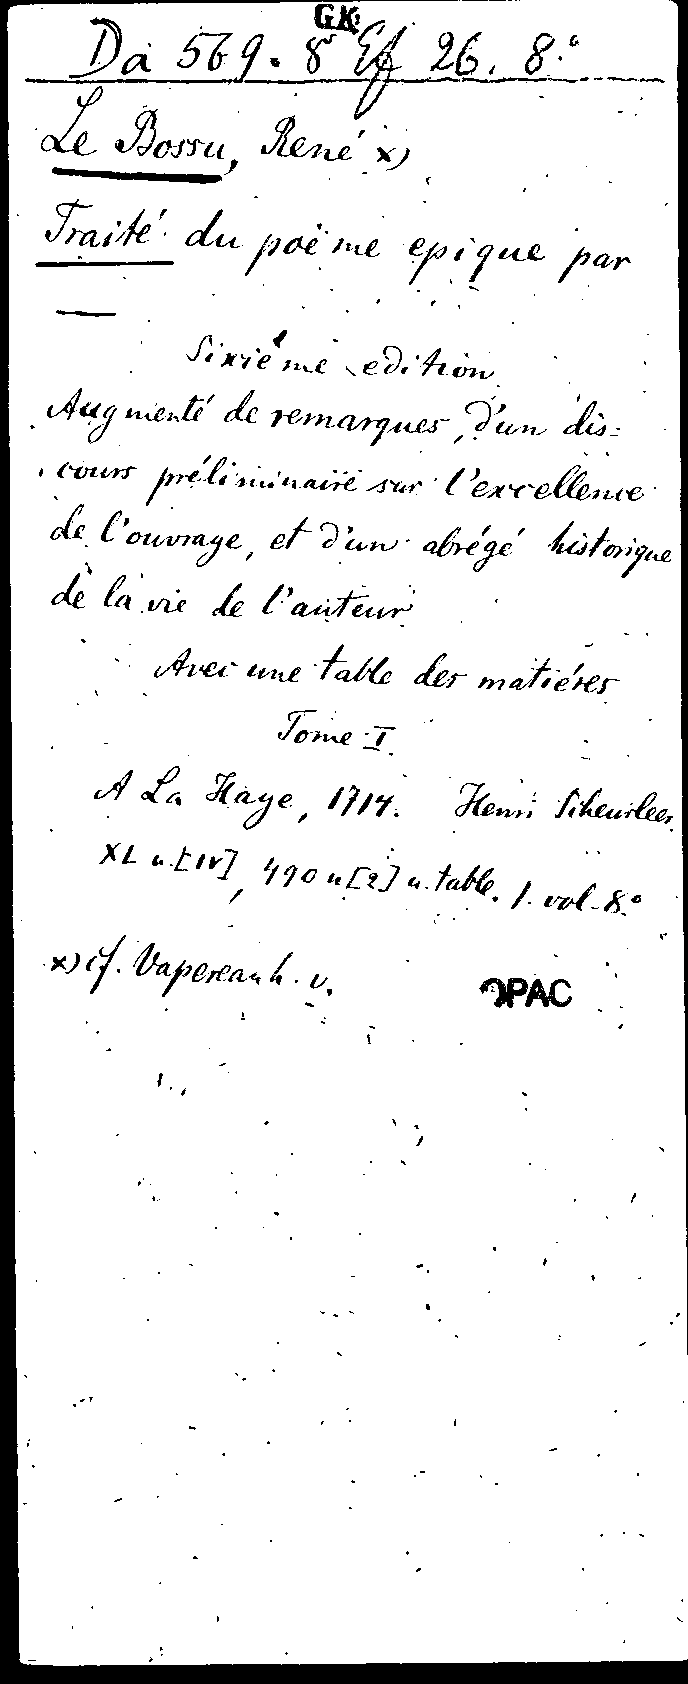 GK
Da 569. 8° Ef 26. 8.°
Le Bossu, René x)
Traité du poëme epique par
—
Sixiéme edition
Augmenté de remarques, d'un dis=
cours préliminaire sur l'excellence
de l'ouvrage, et d'un abrégé historique
de la vie de l'auteur
Avec une table des matiéres
Tome I.
A La Haye, 1714. Henri Scheurleer.
XL u. [IV], 490 u [2] u. table. 1. vol. 8.°
x) cf. Vapereau h. v.
OPAC